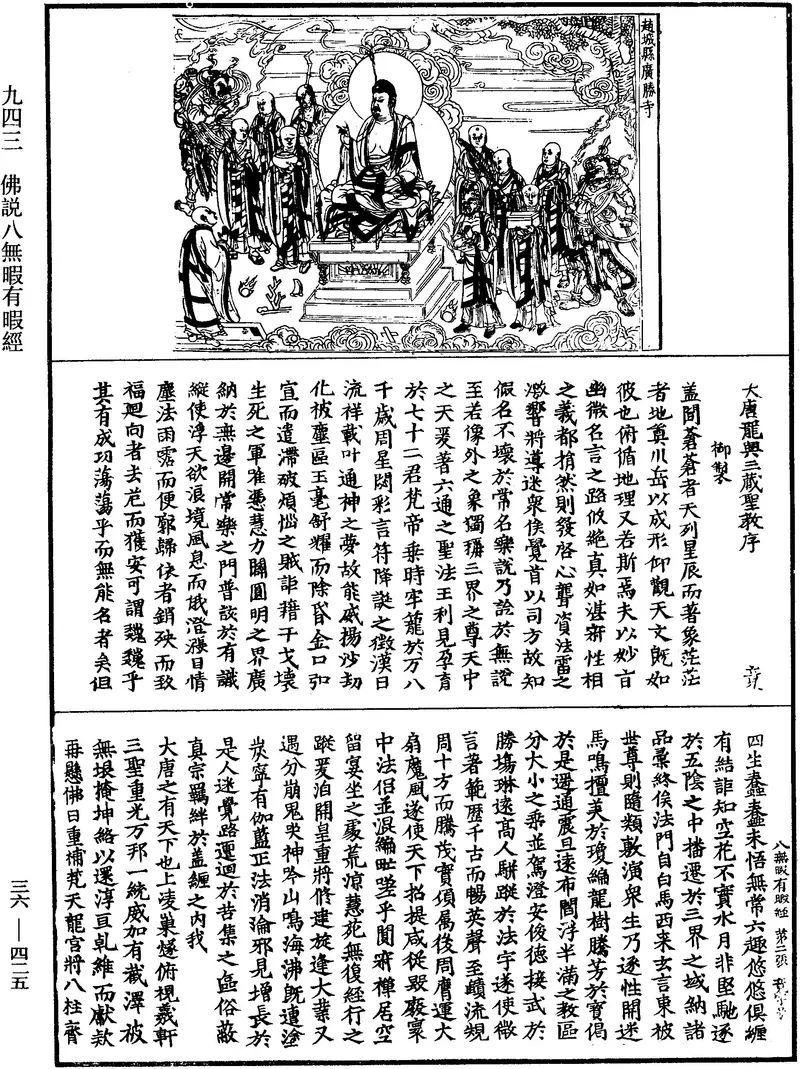 九四三　佛説八無暇有暇經
三六——四二五
趙城縣廣勝寺
大唐龍興三藏聖教序
御製
蓋聞蒼蒼者天列星辰而著象茫茫
者地奠川岳以成形仰觀天文既如
彼也俯循地理又若斯焉夫以妙旨
幽微名言之路攸絶真如湛寂性相
之義都捐然則發啓心聾資法雷之
激響將導迷衆俟覺首以司方故知
假名不壞於常名樂説乃詮於無説
至若像外之象獨稱三界之尊天中
之天爰著六通之聖法王利見孕育
於七十二君梵帝乗時牢籠於万八
千歳周星閟彩言符降誕之徴漢日
流祥載叶通神之夢故能威揚沙劫
化被塵區玉毫舒耀而除昏金口弘
宣而遣滯破煩惱之賊詎藉干戈壊
生死之軍唯慿慧力闢圓明之界廣
納於無邊開常樂之門普該於有識
縱使浮天欲浪境風息而俄澄漲日情
塵法雨霑而便廓歸依者銷殃而致
福迴向者去危而獲安可謂巍巍乎
其有成功蕩蕩乎而無能名者矣但
八無暇有暇經　第二張
四生蠢蠢未悟無常六趣悠悠俱纏
有結詎知空花不實水月非堅馳逐
於五陰之中播遷於三界之域納諸
品彙終俟法門自白馬西来玄言東被
世尊則隨類敷演衆生乃逐性開迷
馬鳴擅美於瓊編龍樹騰芳於寶偈
於是遐通震旦遠布閻浮半滿之教區
分大小之乗並駕澄安俊德接武於
勝塲琳遠髙人駢蹤於法宇遂使微
言著範歴千古而暢英聲至賾流規
周十方而騰茂實須属後周膺運大
扇魔風遂使天下招提咸從毁廢寰
中法侣並混編甿嗟乎闃寂禪居空
留宴坐之處荒凉慧苑無復經行之
蹤爰泊開皇重將修建旋逢大業又
遇分崩鬼哭神吟山鳴海沸既連塗
炭寧有伽藍正法消淪邪見增長於
是人迷覺路邅迴於苦集之區俗蔽
真宗羈絆於盖纏之内我
大唐之有天下也上凌巢燧俯視羲軒
三聖重光万邦一統威加有截澤被
無垠掩坤絡以還淳亘乹維而獻欵
再懸佛日重補梵天龍宮將八柱齊